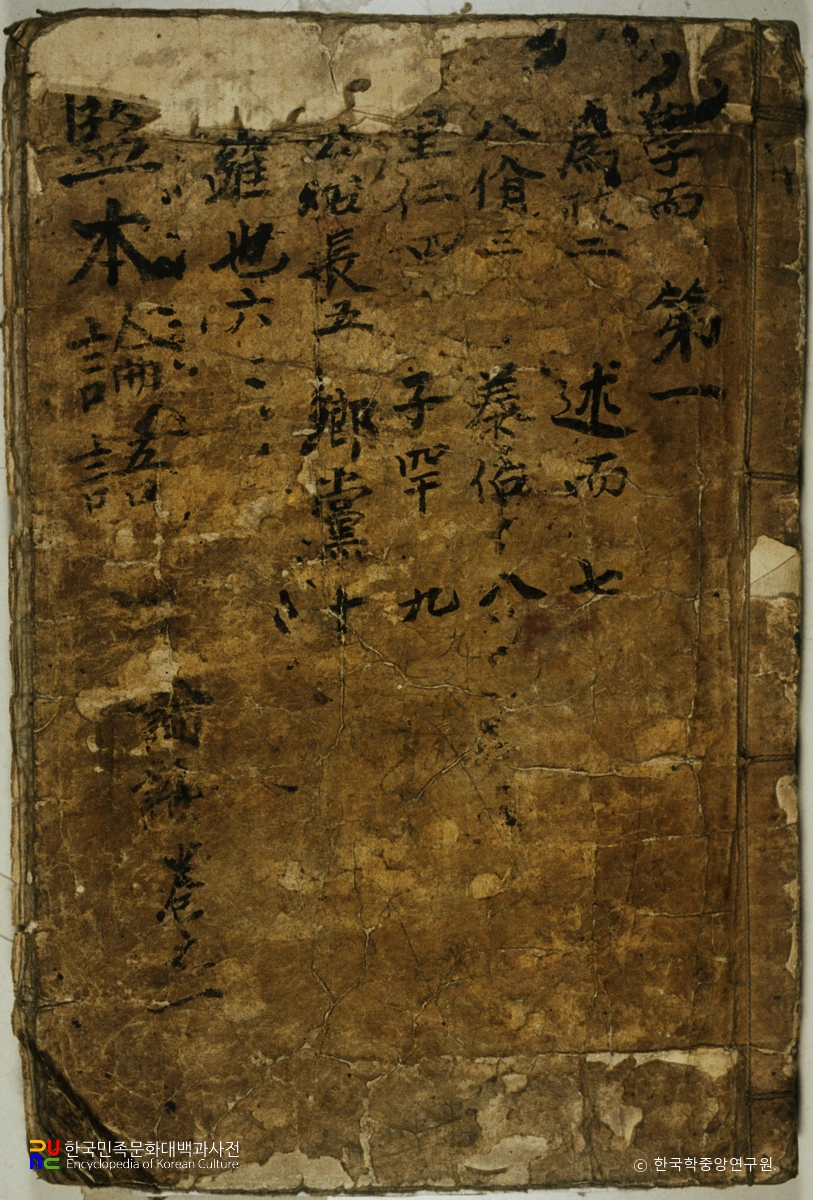 學而 第一
爲政二 述而 七
八佾三 泰伯 八
里仁四 子罕 九
公冶長五 鄉黨 十
雍也六
監本論語
論語卷之一
한국민족문화대백과사전
Encyclopedia of Korean Culture
© 한국학중앙연구원